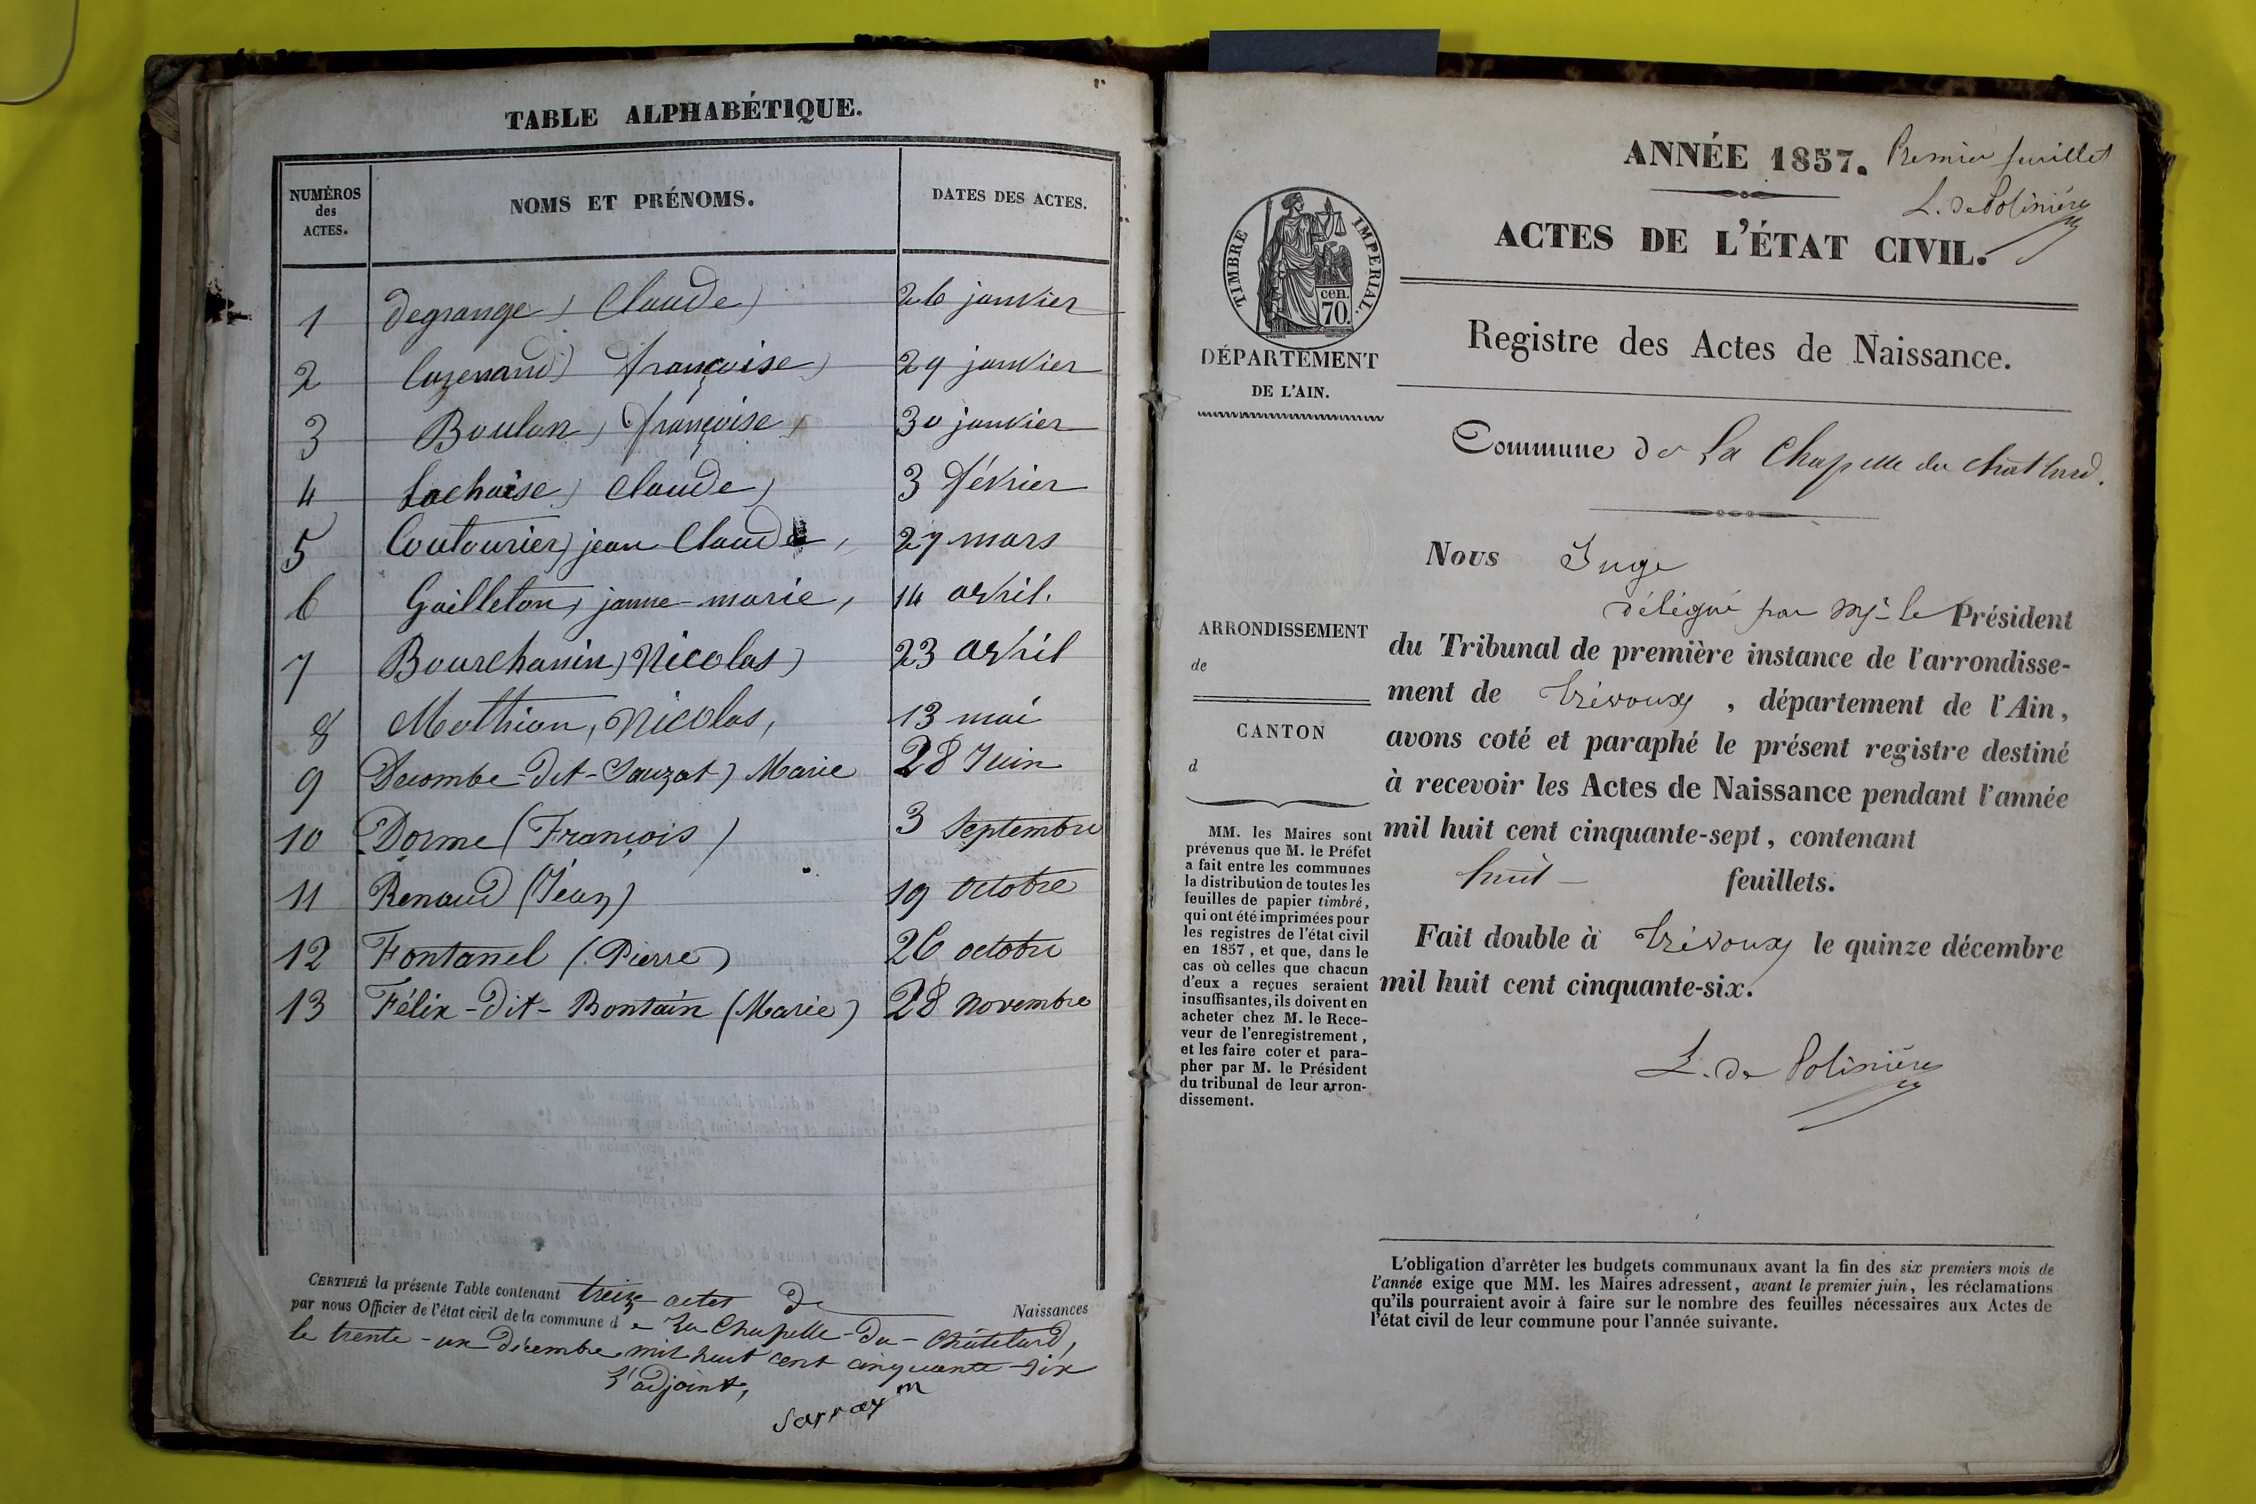 TABLE ALPHABÉTIQUE.
NUMÉROS
des
ACTES.
NOMS ET PRÉNOMS.
DATES DES ACTES.
1 degrange, Claude, 26 janvier
2 françoise, 29 janvier
3 Boulon, françoise, 30 janvier
4 Lachaise, Claude, 3 février
5 Coutourier, jean Claude, 27 mars
6 Gailleton, janne-marie, 14 avril.
7 Bourchanin, Nicolas, 23 avril
8 Mathian, Nicolas, 13 mai
9 Decombe-dit-Sauzat, Marie 28 Juin
10 Dorme (François) 3 Septembre
11 Renaud (Jean) 19 Octobre
12 Fontanel (Pierre) 26 octobre
13 Félix-dit-Bontain (Marie) 28 novembre
CERTIFIÉ la présente Table contenant treize actes de Naissances
par nous Officier de l'état civil de la commune de La Chapelle-du-Châtelard,
le trente-un décembre mil huit cent cinquante-six
L'adjoint,
Sarray
ANNÉE 1857.
Premier feuillet
L. de Polinière
ACTES DE L'ÉTAT CIVIL.
TIMBRE IMPERIAL.
cen.
70.
DÉPARTEMENT
DE L'AIN.
Registre des Actes de Naissance.
Commune de La Chapelle du chatelard.
ARRONDISSEMENT
de
CANTON
d
MM. les Maires sont
prévenus que M. le Préfet
a fait entre les communes
la distribution de toutes les
feuilles de papier timbré,
qui ont été imprimées pour
les registres de l'état civil
en 1857, et que, dans le
cas où celles que chacun
d'eux a reçues seraient
insuffisantes, ils doivent en
acheter chez M. le Rece-
veur de l'enregistrement,
et les faire coter et para-
pher par M. le Président
du tribunal de leur arron-
dissement.
Nous Juge
délégué par Mr. le Président
du Tribunal de première instance de l'arrondisse-
ment de Trévoux, département de l'Ain,
avons coté et paraphé le présent registre destiné
à recevoir les Actes de Naissance pendant l'année
mil huit cent cinquante-sept, contenant
huit feuillets.
Fait double à Trévoux le quinze décembre
mil huit cent cinquante-six.
L. de Polinière
L'obligation d'arrêter les budgets communaux avant la fin des six premiers mois de
l'année exige que MM. les Maires adressent, avant le premier juin, les réclamations
qu'ils pourraient avoir à faire sur le nombre des feuilles nécessaires aux Actes de
l'état civil de leur commune pour l'année suivante.